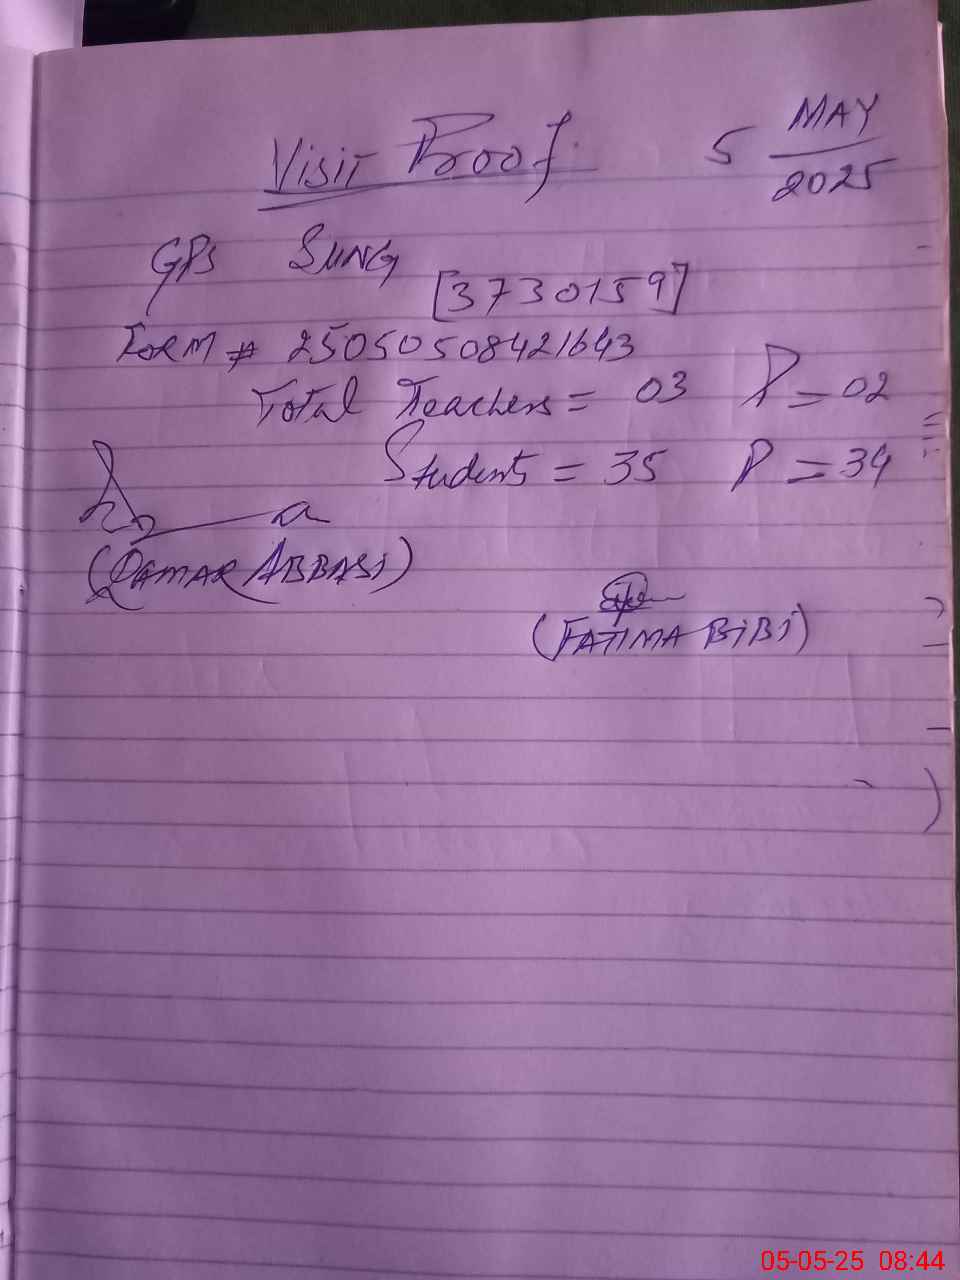 Visit Proof 5 MAY
2025
GPS SUNG
[37301597]
FORM # 25050508421643
Total Teachers = 03 P = 02
Students = 35 P = 34
(QAMAR ABBASI)
(FATIMA BIBI)
05-05-25 08:44